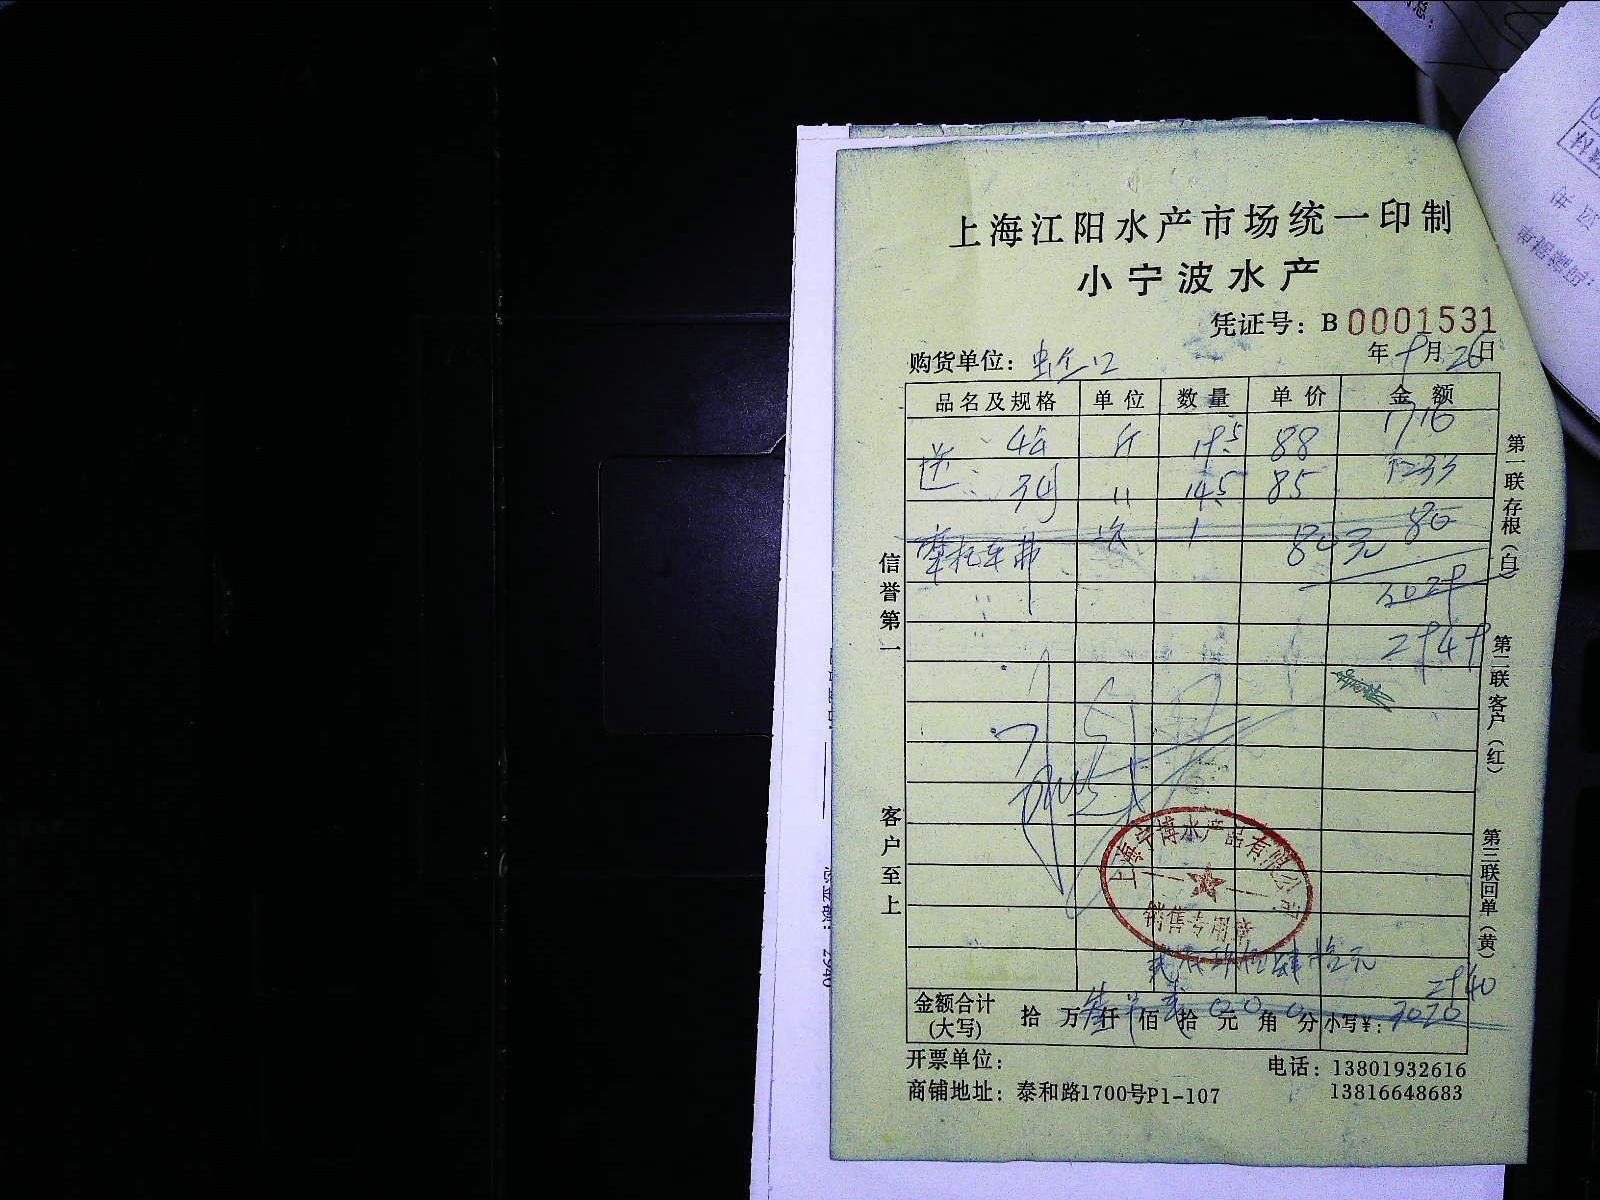 上海江阳水产市场统一印制
小宁波水产
凭证号：B 0001531
购货单位： 年 9月26日
品名及规格 单位 数量 单价 金额
斤 19.5 88 1716
〃 14.5 85 1233
摩托车费 次 1 80元 80
3029
2949
上海宁博水产品有限公司
销售专用章
贰仟玖佰肆拾元
2940
金额合计(大写) 拾 万 仟 佰 拾 元 角 分 小写¥： 3020
开票单位：
电话：13801932616
商铺地址：泰和路1700号P1-107
13816648683
信誉第一
客户至上
第一联存根（白）
第二联客户（红）
第三联回单（黄）